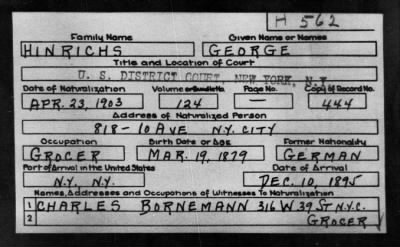 H 562
Family Name Given Name or Names
HINRICHS GEORGE
Title and Location of Court
U. S. DISTRICT COURT, NEW YORK, N.Y.
Date of Naturalization Volume or Bundle No. Page No. Copy of Record No.
APR. 23, 1903 124 — 444
Address of Naturalized Person
818-10 AVE N.Y. CITY
Occupation Birth Date or Age Former Nationality
GROCER MAR. 19, 1879 GERMAN
Port of Arrival in the United States Date of Arrival
N.Y. N.Y. DEC. 10, 1895
Names, Addresses and Occupations of Witnesses To Naturalization
1 CHARLES BORNEMANN 316 W 39 ST N.Y.C.
2 GROCER